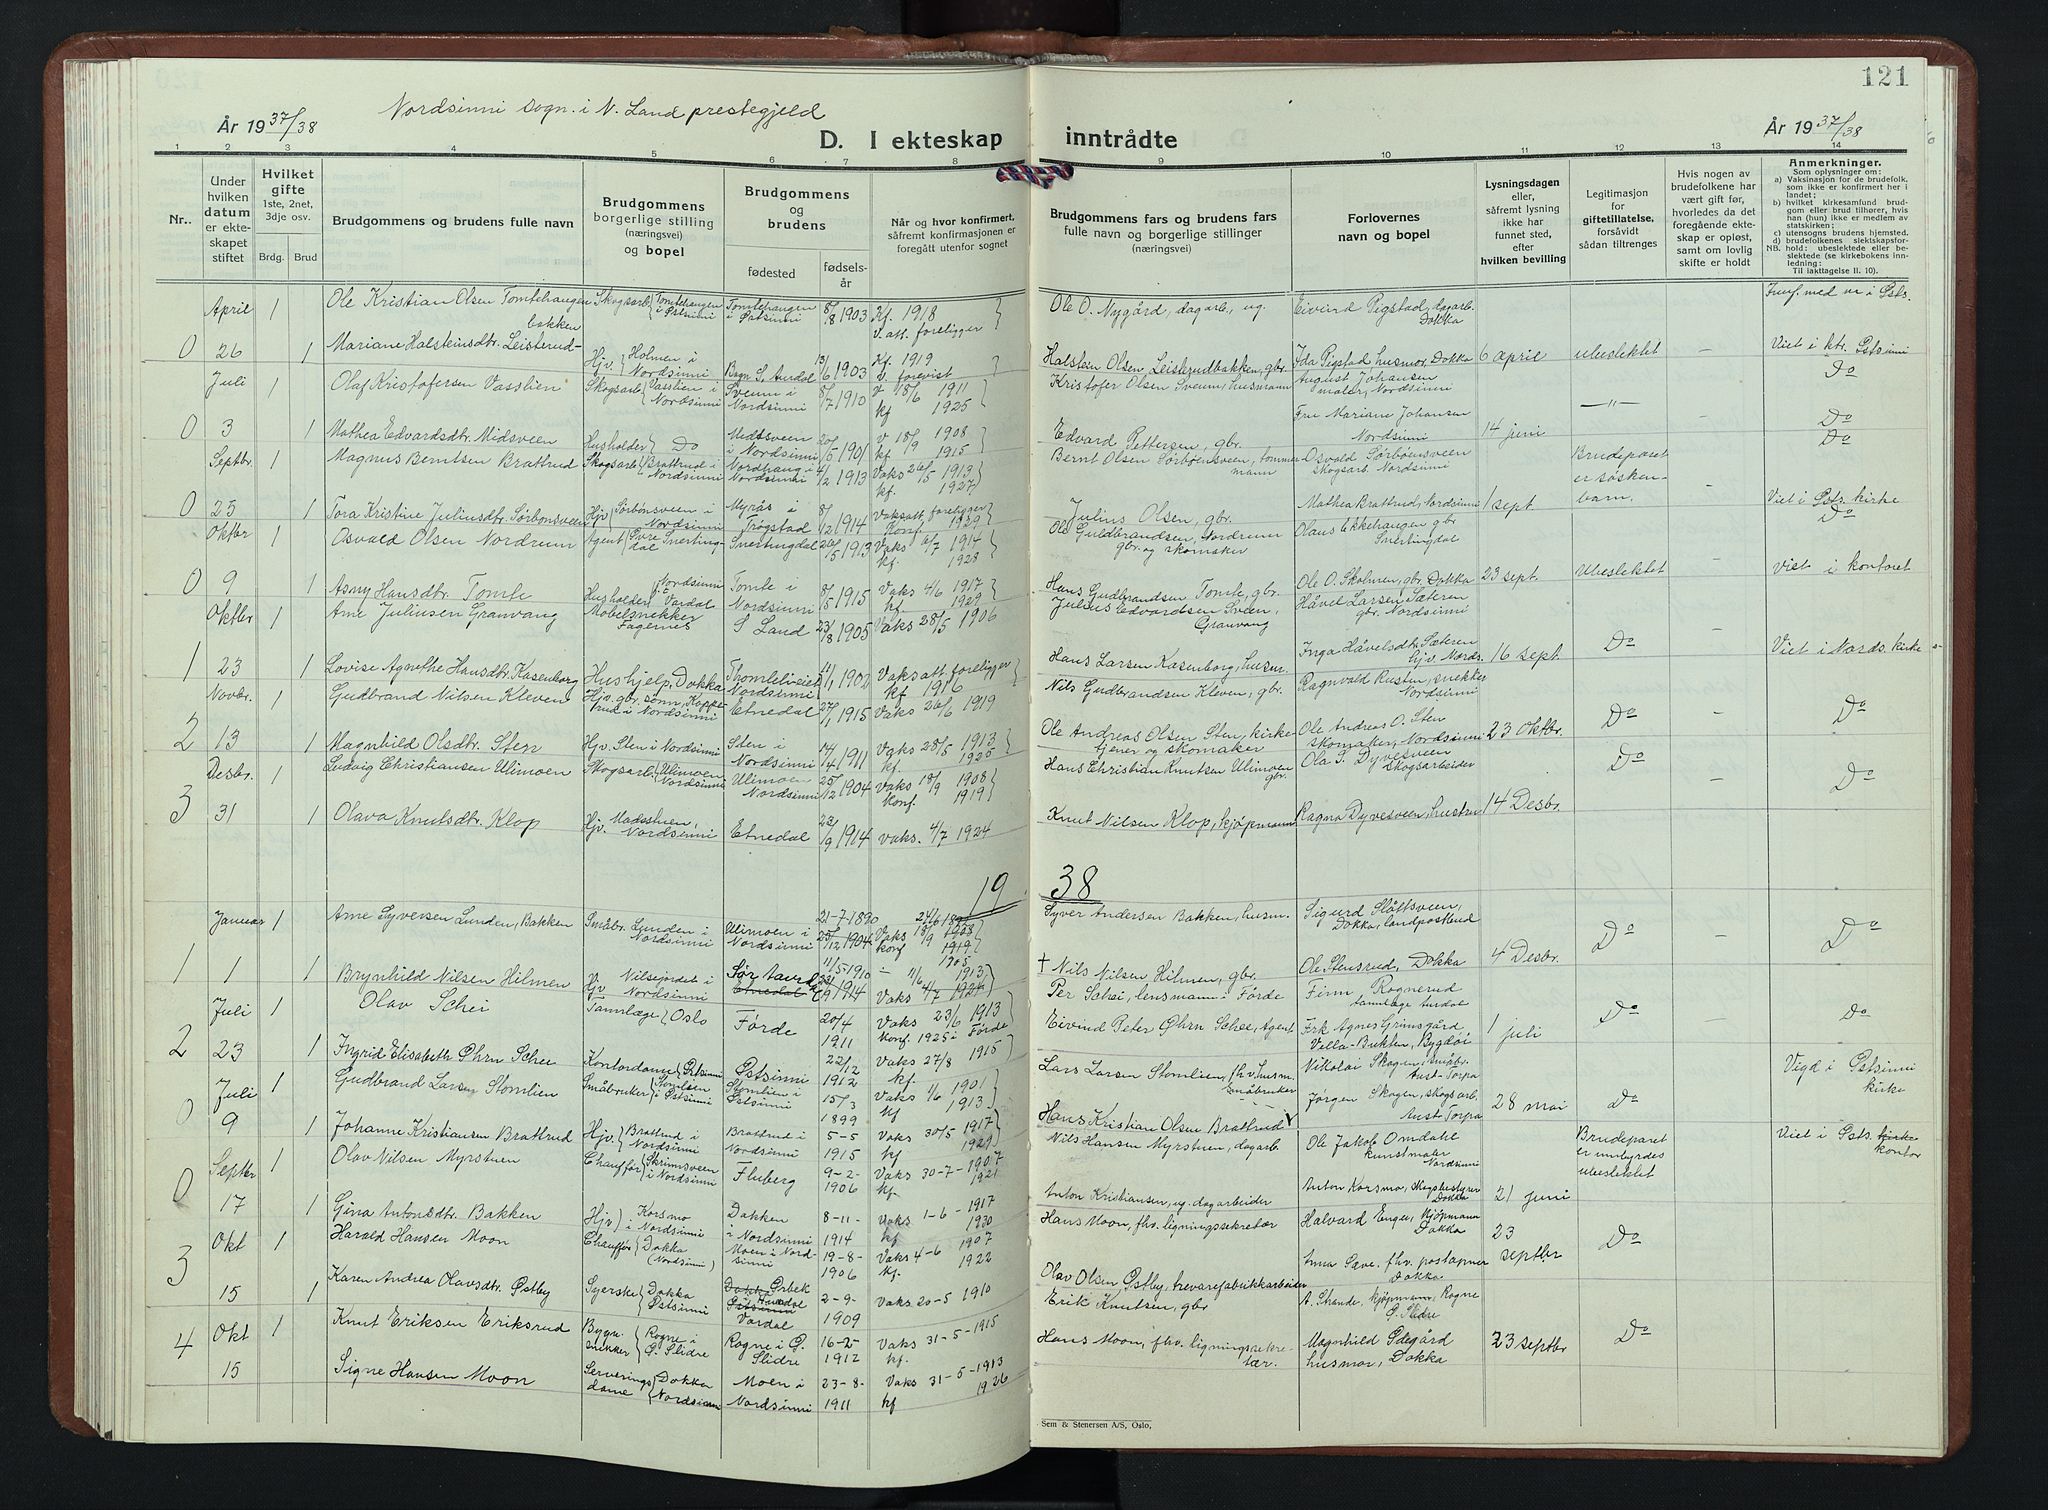 121
Nordsinni sogn. i N. Land prestegjeld
År 1937/38
D. I ekteskap inntrådte
År 1937/38
1 2 3 4 5 6 7 8 9 10 11 12 13 14
Nr.
Under hvilken datum er ekteskapet stiftet
Hvilket gifte 1ste, 2net, 3dje osv.
Brdg. Brud
Brudgommens og brudens fulle navn
Brudgommens borgerlige stilling (næringsvei) og bopel
Brudgommens og brudens
fødested
fødselsår
Når og hvor konfirmert, såfremt konfirmasjonen er foregått utenfor sognet
Brudgommens fars og brudens fars fulle navn og borgerlige stillinger (næringsvei)
Forlovernes navn og bopel
Lysningsdagen eller, såfremt lysning ikke har funnet sted, efter hvilken bevilling
Legitimasjon for giftetillatelse, forsåvidt sådan tiltrenges
Hvis nogen av brudefolkene har vært gift før, hvorledes da det foregående ekteskap er opløst, samt om lovlig skifte er holdt
Anmerkninger.
Som oplysninger om:
a) Vaksinasjon for de brudefolk, som ikke er konfirmert her i landet;
b) hvilket kirkesamfund brudgom eller brud tilhører, hvis han (hun) ikke er medlem av statskirken;
c) utensogns brudens hjemsted.
d) brudefolkenes slektskapsforhold: ubeslektede eller beslektede (se kirkebokens innledning:
Til iakttagelse II. 10).
April 1 Ole Kristian Olsen Tomtehaugen Skogsarb. Tomtehaugen i Østsinni Tomtehaugen i Østsinni 8/8 1903 Kf. 1918 Ole O. Nygård, dagarb. Eivind Pigstad, dagarb. Dokka
0 26 1 Mariane Halsteinsdtr. Leisterudbakken Hjv. Holmen i Nordsinni Bagn S. Aurdal 13/6 1903 Kf. 1919 Halstein Olsen Leisterudbakken, gbr. Ida Pigstad husmor, Dokka 6 april ubeslektet Viet i ktr. Østsinni
Juli 1 Olaf Kristofersen Vasslien Skogsarb. Vasslien i Nordsinni Sveum i Nordsinni 8/7 1910 v 18/6 1911 kf 1925 Kristofer Olsen Sveum, husmann August Johansen maler, Nordsinni —"— Do
0 3 1 Mathea Edvardsdtr. Midsveen Husholder Do Midtsveen i Nordsinni 20/5 1901 v 18/9 1908 kf 1915 Edvard Pettersen, gbr. Fru Mariane Johansen Nordsinni 14 juni Do
Septbr. 1 Magnus Berntsen Brattrud Skogsarb. Brattrud i Nordsinni Nordhaug i Nordsinni 4/2 1913 Vaks 26/5 1913 kf. 1927 Bernt Olsen Sørbønsveen, tømmermann Osvald Sørbøensveen skogsarb. Nordsinni Brudeparet er søskenbarn. Do
0 25 1 Tora Kristine Juliusdtr. Sørbønsveen Hjv Sørbønsveen i Nordsinni Myrås i Trøgstad 8/12 1914 Vaksatt. foreligger Konf. 1929 Julius Olsen, gbr. Mathea Brattrud, Nordsinni 1 sept. Viet i Østs. kirke
Oktbr 1 Osvald Olsen Nordrum Agent Øvre Snertingdal Snertingdal 26/5 1913 Vaks 6/7 1914 kf. 1928 Ole Guldbrandsen, Nordrum gbr. og skomaker Olaus Ekkehaugen gbr Snertingdal Do
0 9 1 Asny Hansdtr. Tomle Husholder Nordsinni Vardal Tomle i Nordsinni 8/5 1915 Vaks 4/6 1917 kf 1929 Hans Gudbrandsen Tomle, gbr. Ole O. Skolmen, gbr. Dokka 23 sept. Ubeslektet Viet i kontoret
Oktbr 1 Arne Juliusen Granvang Møbelsnekker Fagernes S Land 23/8 1905 Vaks 28/5 1906 Julius Edvardsen Sveen, Granvang Håvel Larsen Sæteren gbr. Nordsinni
1 23 1 Lovise Agnethe Hansdtr. Kasenborg Hushjelp, Dokka Thomleveiet Nordsinni 11/1 1902 Vaksatt. foreligger kf 1916 Hans Larsen Kasenborg, husm. Inga Håvelsdtr. Sæteren hjv. Nords. 16 sept. Do Viet i Nords. kirke
Novbr. 1 Gudbrand Nilsen Kleven Hjv. gbr. sønn, Kopperud i Nordsinni Etnedal 27/1 1915 Vaks 26/6 1919 Nils Gudbrandsen Kleven, gbr. Ragnvald Rusten, snekker Nordsinni
2 13 1 Magnhild Olsdtr. Sten Hjv. Sten i Nordsinni Sten i Nordsinni 14/4 1911 Vaks 28/5 1913 kf. 1925 Ole Andreas Olsen Sten, kirketjener og skomaker Ole Andreas O. Sten skomaker, Nordsinni 23 Oktbr. Do Do
Desbr. 1 Ludvig Christiansen Ulimoen Skogsarb. Ulimoen Nordsinni Ulimoen Nordsinni 25/12 1904 Vaks 18/9 1908 Konf. 1919 Hans Christian Knutsen Ulimoen gbr. Ola S. Dyvesveen skogsarbeider Do Do
3 31 1 Olava Knutsdtr. Klop Hjv. Madsstuen, Nordsinni Etnedal 22/9 1914 vaks. 4/7 1924 Knut Nilsen Klop, kjøpmann Ragna Dyvesveen, hustru 14 Desbr.
19 38
Januar 1 Arne Syversen Lunden, Bakken Småbr. Lunden i Nordsinni Ulimoen i Nordsinni 21-7-1890 25/12 1904 Vaks 18/9 1908 konf 1919 1905 Syver Andersen Bakken, husm. Sigurd Slåttsveen, Dokka, landpostbud Do Do
1 1 1 Brynhild Nilsen Hilmen Hjv Nilsejordet i Nordsinni Sør Aurdal Etnedal 11/5-1910 22/9 1914 — 11/6 1913 Vaks 4/7 1924 † Nils Nilsen Hilmen, gbr. Ole Stensrud, Dokka 4 Desbr.
Juli 1 Olav Schei Tannlæge Oslo Førde 20/4 1911 Vaks 23/6 1913 Konf. 1925 i Førde Per Schei, lensmann i Førde Finn Rognerud tannlæge Aurdal Do Do
2 23 1 Ingrid Elisabeth Øhrn Schee Kontordame Østsinni Østsinni 22/12 1912 Vaks 27/8 1915 kf. Eivind Peter Øhrn Schee, Agent Frk Agnes Grimsgård, Vella-Bukten, Bygdøi 1 juli
Juli 1 Gudbrand Larsen Stomlien Småbruker Stomlien i Østsinni Stomlien i Østsinni 15/3 1899 Vaks 1/6 1901 kf 1913 Lars Larsen Stomlien, fhv. husm. småbruker Nikolai Skogen, småbr. Aust-Torpa Vigd i Østsinni kirke
0 9 1 Johanne Kristiansen Brattrud Hjv. Brattrud i Nordsinni Brattrud i Nordsinni 5-5 1915 Vaks 30/5 1917 kf 1929 Hans Kristian Olsen Brattrud Jørgen Skogen, skogsarb. Aust Torpa 28 mai Do
Septbr 1 Olav Nilsen Myrstuen Chauffør Skrinnsveen i Nordsinni Fluberg 9-2- 1906 Vaks 30-7-1907 kf. 1921 Nils Hansen Myrstuen, dagarb. Ole Jakob Omdahl kunstmaler Nordsinni Brudeparet er ubeslektet Viet i Østs. kirke kontor
0 17 1 Gina Antonsdtr. Bakken Hjv Korsmo i Nordsinni Bakken i Nordsinni 8-11- 1914 Vaks 1-6-1917 kf 1930 Anton Kristiansen, dagarbeider Anton Korsmo, Skogbestyrer Dokka 21 juni
Okt 1 Harald Hansen Moon Chauffør Dokka (Nordsinni) Moen i Nordsinni 19-8- 1906 Vaks 4-6 1907 kf. 1922 Hans Moon, fhv. ligningssekretær Halvard Enger, kjøpmann Dokka 23 septbr Do
3 15 1 Karen Andrea Olavsdtr. Østby Syerske Dokka Østsinni Vardal 2-9- 1909 Vaks 20-5 1910 Olav Olsen Østby, trevarefabrikkarbeider fhv. postapner Dokka
4 Okt 1 Knut Eriksen Eriksrud Bygn. snikker Rogne i Ø. Slidre Rogne i Ø. Slidre 16-2- 1912 Vaks 31-5-1915 kf. Erik Knutsen, gbr A. Strande, kjøpmann, Rogne Ø. Slidre Do
15 Signe Hansen Moon Serveringsdame Dokka Nordsinni Moen i Nordsinni 23-8- 1911 Vaks 31-5-1913 kf 1926 Hans Moon, fhv. ligningssekretær. Magnhild Ødegård husmor, Dokka 23 septbr
Sem & Stenersen A/S, Oslo.